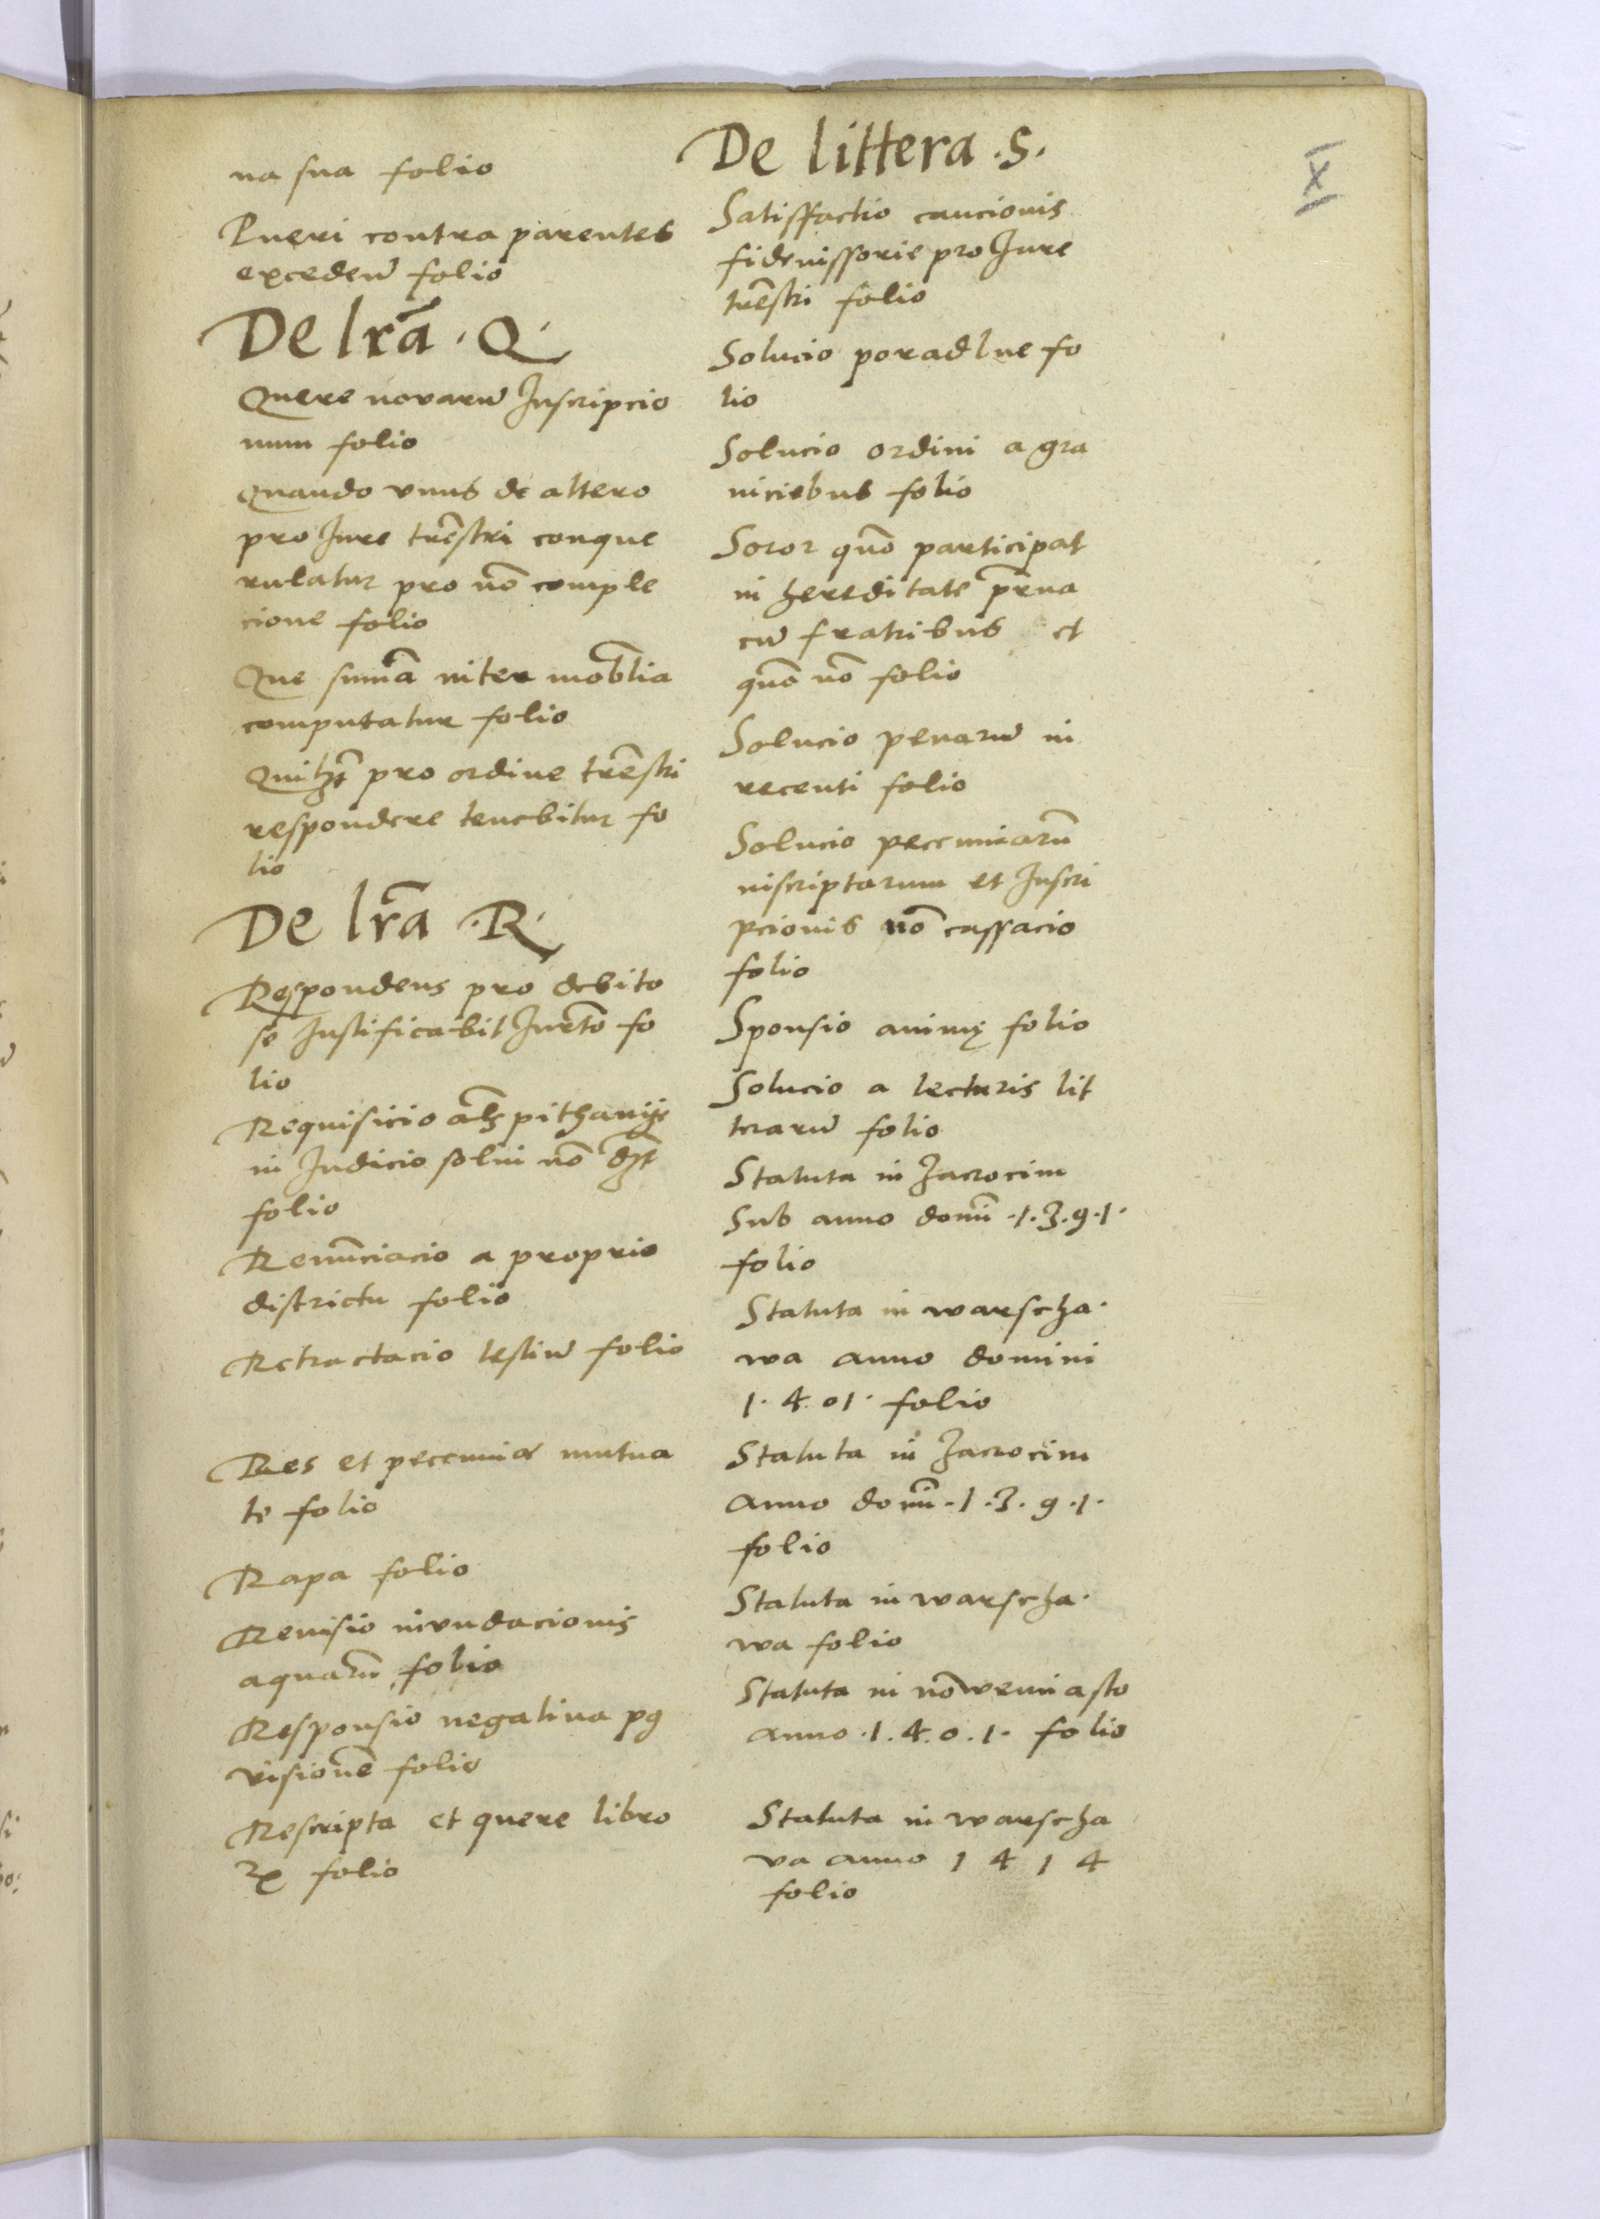 na sua folio
Pueri contra parentes
exceden̄ folio
De lr̄a ·Q·
Quere novarū Inscripcio
num folio
Quando vnus de altero
pro Jure tr̄estri conque
rulatur pro nō comple
cione folio
Que sum̄a inter mob̄lia
computatur folio
Qui hꝫt pro ordine tr̄estri
respondere tenebitur fo
lio
De lr̄a ·R·
Respondens pro debito
se Justificabit Jur̄to fo
lio
Requisicio al̄s pithanije
in Judicio solui nō dꝫt
folio
Renūciacio a proprio
districtu folio
Retractacio testiū folio
Res et peccuniæ mutua
te folio
Rapa folio
Reuisio invndacionis
aquarū folio
Responsio negatiua
visionē folio
Rescripta et quere libro
ꝝ folio
De littera ·S·
Satisffactio caucionis
fideiussorie pro Jure
tr̄estri folio
Solucio poradlne fo
lio
Solucio ordini a gra
niciebus folio
Soror quō participat
in hereditate pr̄na
cū fratribus et
quō nō folio
Solucio penarū in
recenti folio
Solucio peccuniarū
inscriptarum et Inscri
pcionis nō cassacio
folio
Sponsio animę folio
Solucio a lecturis lit
terarū folio
Statuta in Zacrocim
Sub anno domī ·1·3·9·1·
folio
Statuta in warscha·
wa anno domini
1·4·01· folio
Statuta in Zacrocim
Anno domī ·1·3·9·1·
folio
Statuta in warscha·
wa folio
Statuta in nōwemiasto
anno ·1·4·0·1· folio
Statuta in warscha
va anno 1 4 1 4
folio
X